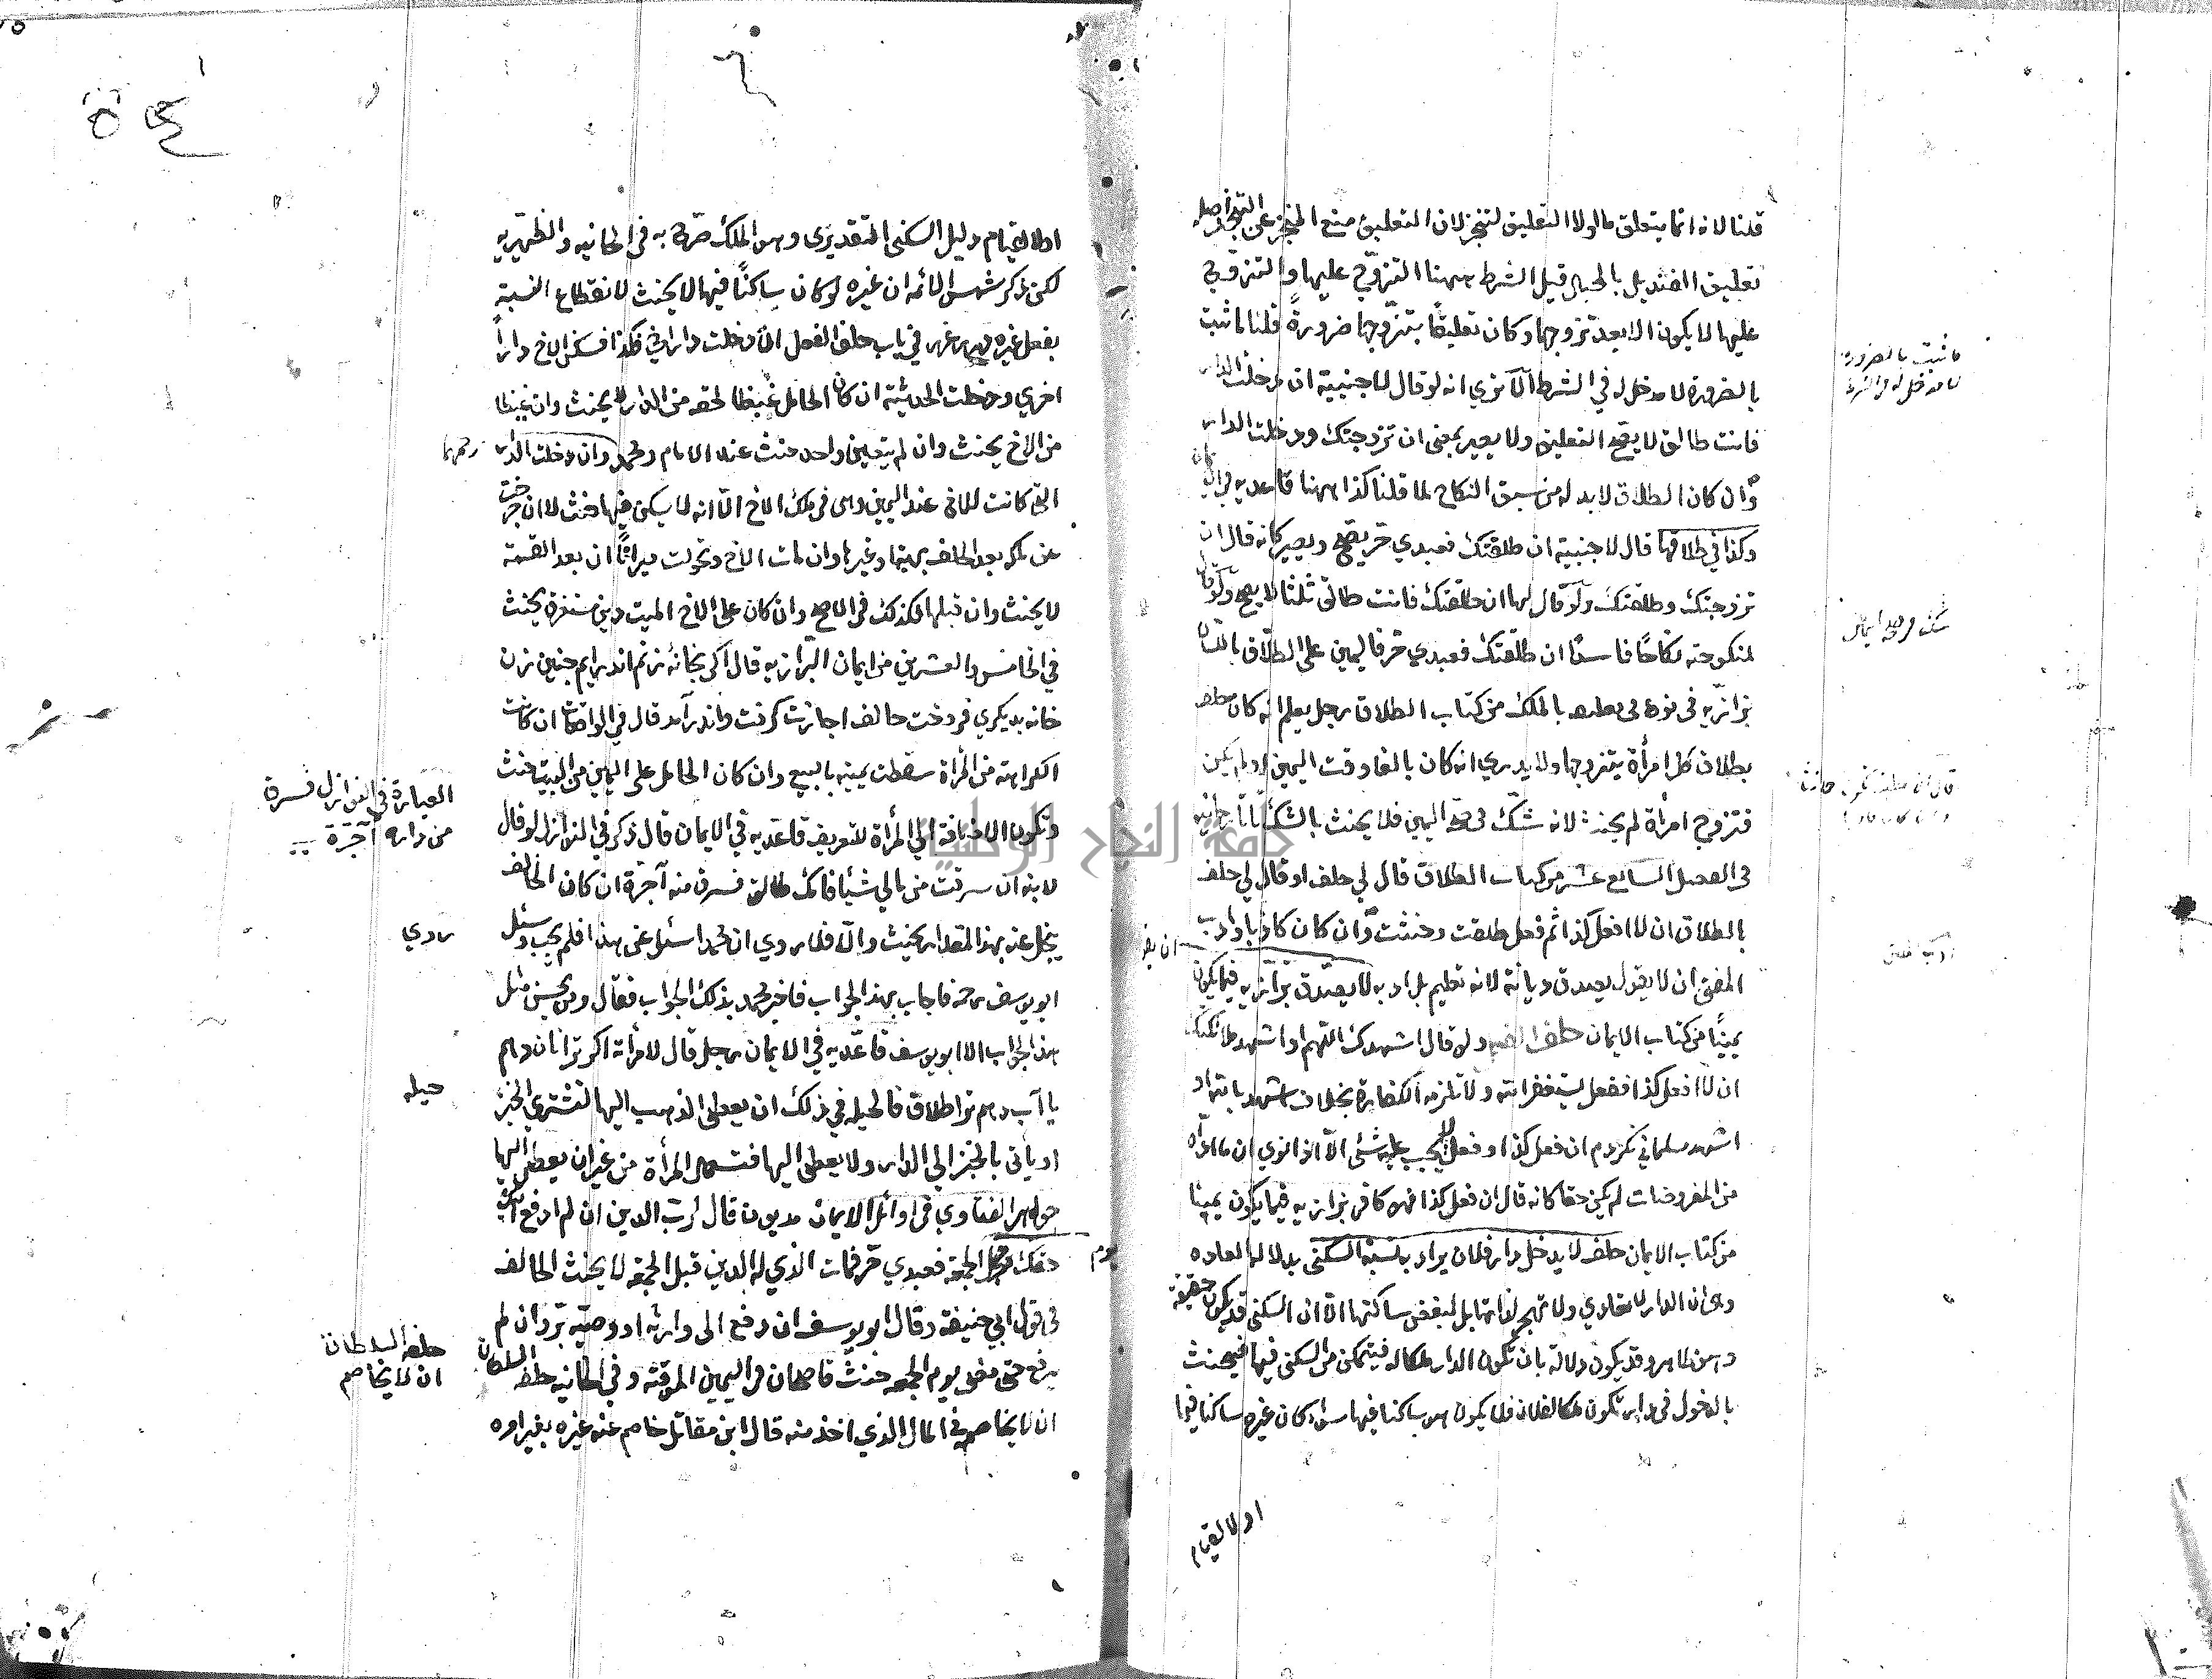 قلنا لانه انما يتعلق ما لولا التعليق لتنجز لان التعليق منع المنجز عن التنجز اصله
تعليق القنديل بالحبال قبل الشرط ههنا التزوج عليها والتزوج
عليها لا يكون الا بعد تزوجها وكان تعليقا بتزوجها ضرورة قلنا ما ثبت
بالضرورة لا مدخل له في الشرط الا ترى انه لو قال لاجنبية ان دخلت الدار
فانت طالق لا يصح التعليق ولا يصير بمعنى ان تزوجتك ودخلت الدار
وان كان الطلاق لا بد له من سبق النكاح لما قلنا كذا ههنا قاعديه
وكذا في طلاقها قال لاجنبية ان طلقتك فعبدي حر يصح ويصير كانه قال ان
تزوجتك وطلقتك ولو قال لها ان طلقتك فانت طالق ثلثا لا يصح ولو قال
لمنكوحته نكاحا فاسدا ان طلقتك فعبدي حر فاليمين على الطلاق باللسان
بزازيه في نوع في بالملك من كتاب الطلاق رجل يعلم انه كان حلف
بطلاق كل امرأة يتزوجها ولا يدري انه كان بالغا وقت اليمين او لم يكن
فتزوج امرأة لم يحنث لانه شك في صحة اليمين فلا يحنث بالشك
في الفصل السابع عشر من كتاب الطلاق قال لي حلف او قال لي حلف
بالطلاق ان لا افعل كذا ثم فعل طلقت وحنثت وان كان كاذبا وادب
المفتي ان لا يقول يصدق ديانة لانه تعليم بل ادبه لا يصدق بزازيه فيما يكون
يمينا من كتاب الايمان ولو قال اشهدك اللهم واشهد ملائكتك
ان لا افعل كذا ففعل يستغفر الله ولا تلزمه الكفارة بخلاف اشهد بالله او
اشهد مسلماني نكردم ان فعل كذا وفعل لا يجب عليه شئ الا اذا نوى ان ما اداه
من المفروضات لم يكن حقا كانه قال ان فعل كذا فهو كافر بزازيه فيما يكون يمينا
من كتاب الايمان حلف لا يدخل دار فلان يراد به نسبة السكنى بدلالة العادة
وهي ان الدار لا تعادي ولا تهجر لذاتها بل لبغض ساكنها الا ان السكنى قد يكون حقيقة
وهو ظاهر وقد يكون دلالة بان تكون الدار ملكا له فيتمكن من السكنى فيها فيحنث
بالدخول في دار تكون ملكا لفلان فلا يكون هو ساكنا فيها سواء كان غيره ساكنا فيها
او لا لقيام
ما ثبت بالضرورة
لا مدخل له في الشرط
شك في صحة ايمان
او لا لقيام دليل السكنى التقديري وهو الملك صرح به في الخانيه والظهيريه
لكن ذكر شمس الائمه ان غيره لو كان ساكنا فيها لا يحنث لانقطاع النسبة
بفعل غيره في باب حلف الفعل ان دخلت دار اخي فكذا فسكن الاخ دارا
اخرى ودخلت الحديثة ان كان الحامل غيظا لحقه من الدار لا يحنث وان غيظا
من الاخ يحنث وان لم يتعين واحد حنث عند الامام ومحمد وان دخلت الدار
التي كانت للاخ عند اليمين وهي في ملك الاخ الا انه لا يسكن فيها حنث لا ان خرجت
عن ملكه بعد الحلف ببيتها وغيرها وان مات الاخ وتحولت ميراثا ان بعد القسمة
لا يحنث وان قبلها فكذلك في الاصح وان كان على الاخ الميت دين مستغرق يحنث
في الخامس والعشرين من ايمان البزازيه قال اكر بخانه زنم اندرايم چنين زن
خانه بديكري فروخت حالف اجازت كرفت واندر آمد قال في الواقعات ان كانت
الكراهة من المرأة سقطت يمينه بالبيع وان كان الحامل على اليمين من البيت حنث
وتكون الاضافة الى المرأة للتعريف قاعديه في الايمان قال ذكر في النوازل لو قال
لابنه ان سرقت من مالي شيئا فامك طالق فسرق منه آجرة ان كان الحالف
يبخل عنه بهذا المقدار يحنث والا فلا روي ان محمدا سئل عن هذا فلم يجب وسئل
ابو يوسف رحمه فاجاب بهذا الجواب فاخبر محمد بذلك الجواب فقال ومن يحسن مثل
هذا الجواب الا ابو يوسف قاعديه في الايمان رجل قال لامرأته اكر ترا نان دهم
يا آب دهم ترا طلاق فالحيلة في ذلك ان يعطى الذهب اليها لتشتري الخبز
او يأتى بالخبز الى الدار ولا يعطى اليها فتـ المرأة من غير ان يعطى اليها
جواهر الفتاوي في اوائل الايمان مديون قال لرب الدين ان لم ادفع اليك
حقك يوم الجمعة فعبدي حر فمات الذي له الدين قبل الجمعة لا يحنث الحالف
في قول ابي حنيفة وقال ابو يوسف ان دفع الى وارثه او وصيه بر وان لم
يدفع حتى مضى يوم الجمعة حنث قاضيخان في اليمين الموقتة وفي الخانيه حلفه السلطان
ان لا يخاصم في المال الذي اخذ منه قال ابن مقاتل خاصم عنه غيره بغير امره
العبارة في النوازل فسرق
من داره آجرة
روي
حيله
حلفه السلطان
ان لا يخاصم
جامعة النجاح الوطنية